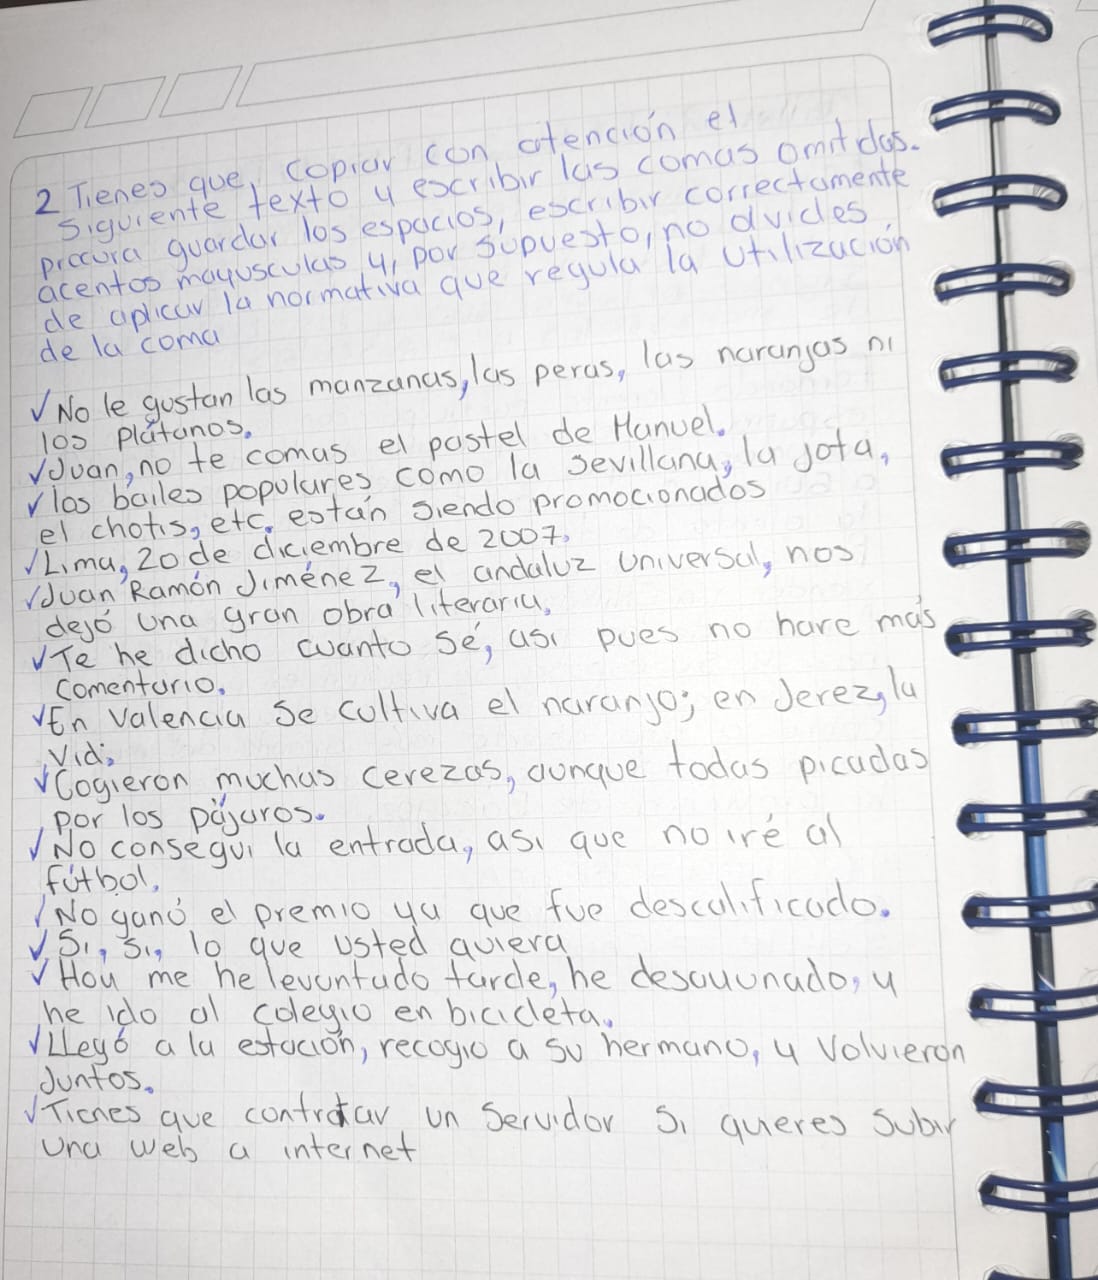 2 Tienes que, copiar con atención el
siguiente texto y escribir las comas omitidas.
procura guardar los espacios, escribir correctamente
acentos mayusculas y, por supuesto, no dvides
de aplicar la normativa que regula la utilización
de la coma
√ No le gustan las manzanas, las peras, las naranjas ni
los plátanos.
√ Juan, no te comas el pastel de Manuel.
√ los bailes populares como la sevillana, la jota,
el chotis, etc. están siendo promocionados
√ Lima, 20 de diciembre de 2007.
√ Juan Ramón Jiménez, el andaluz universal, nos
dejó una gran obra literaria.
√ Te he dicho cuanto sé, asi pues no hare más
comentario.
√ En Valencia se cultiva el naranjo; en Jerez, la
vid.
√ Cogieron muchas cerezas, aunque todas picadas
por los pájaros.
√ No consegui la entrada, asi que no iré al
fútbol.
√ No ganó el premio ya que fue descalificado.
√ Si, si, lo que usted quiera
√ Hoy me he levantado tarde, he desayunado, y
he ido al colegio en bicicleta.
√ LLegó a la estación, recogio a su hermano, y volvieron
Juntos.
√ Tienes que contratar un servidor si quieres subir
una web a internet